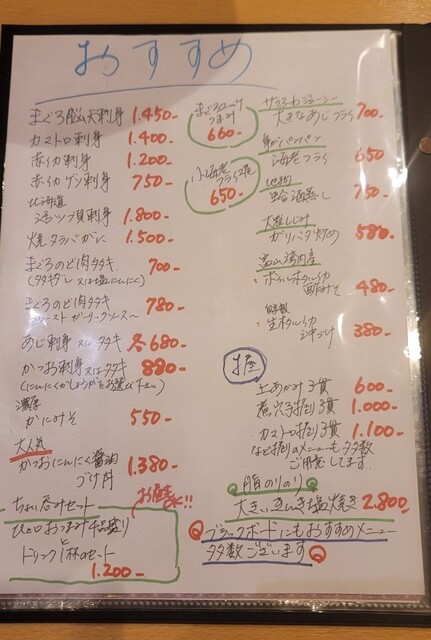 おすすめ
まぐろ脳天刺身 1.450-
カストロ刺身 1.400-
赤イカ刺身 1.200-
赤イカゲソ刺身 750-
北海道
活ツブ貝刺身 1.800-
焼タラバガニ 1.500-
まぐろのど肉タタキ 700-
(タタキダレ 又は塩にんにく)
まぐろのど肉タタキ 780-
あじ刺身 又は タタキ 各680-
かつお刺身 又は タタキ 880-
(にんにくかしょうがをお選び下さい)
濃厚
かにみそ 550-
大人気
かつおにんにく醤油
づけ丼 1.380-
ちょい呑みセット
ひと口おつまみ4品盛り
と
ドリンク1杯のセット
1.200-
まぐろユッケ
660-
小海老
650-
サクふわジューシー
大きなあじフライ 700-
身がパンパン
海老フライ 650
地物
蛤酒蒸し 750-
大粒しじみ
ガリバタ炒め 580-
富山湾内産
・ボイルホタルイカ
酢みそ 480-
自家製
・生ホタルイカ
沖づけ 380-
握
上あかみ3貫 600-
煮穴子握り3貫 1.000-
カストロ握り3貫 1.100-
など握りのメニューも多数
ご用意してます。
脂のりのり
大きい金目塩焼き 2.800-
ブラックボードにもおすすめメニュー
多数ございます